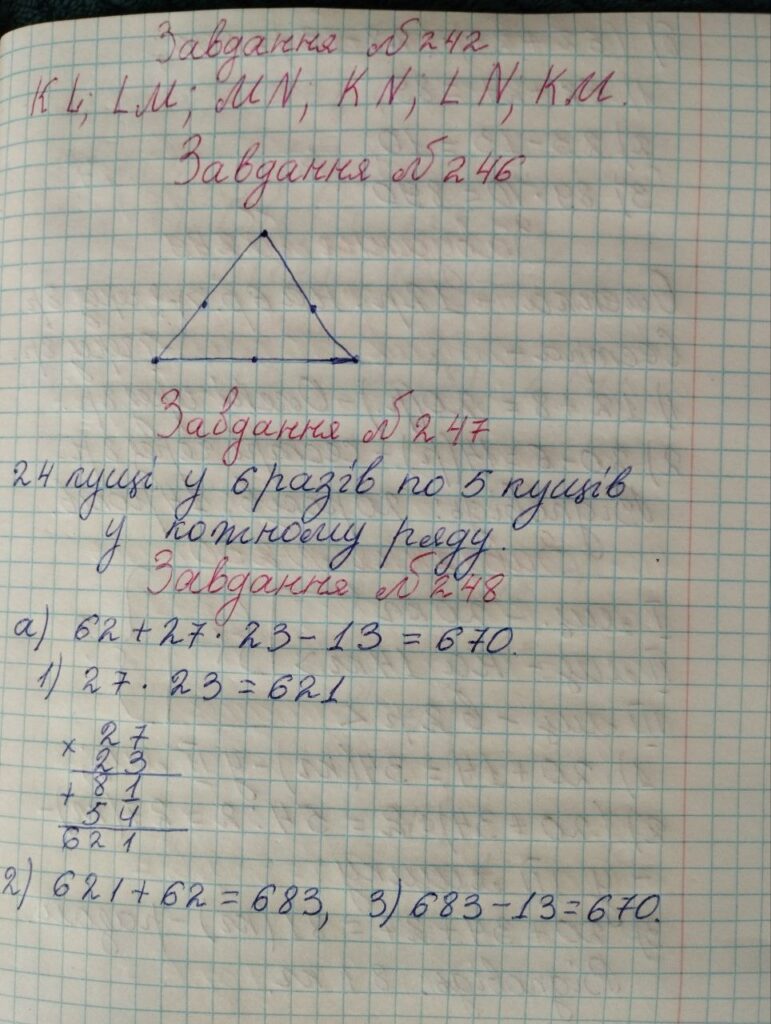 Завдання № 242
KL; LM; MN; KN; LN; KM.
Завдання № 246
Завдання № 247
24 кущі у 6 разів по 5 кущів
у кожному ряду.
Завдання № 248
а) 62 + 27 · 23 - 13 = 670.
1) 27 · 23 = 621
× 27
23
+ 81
54
621
2) 621 + 62 = 683, 3) 683 - 13 = 670.